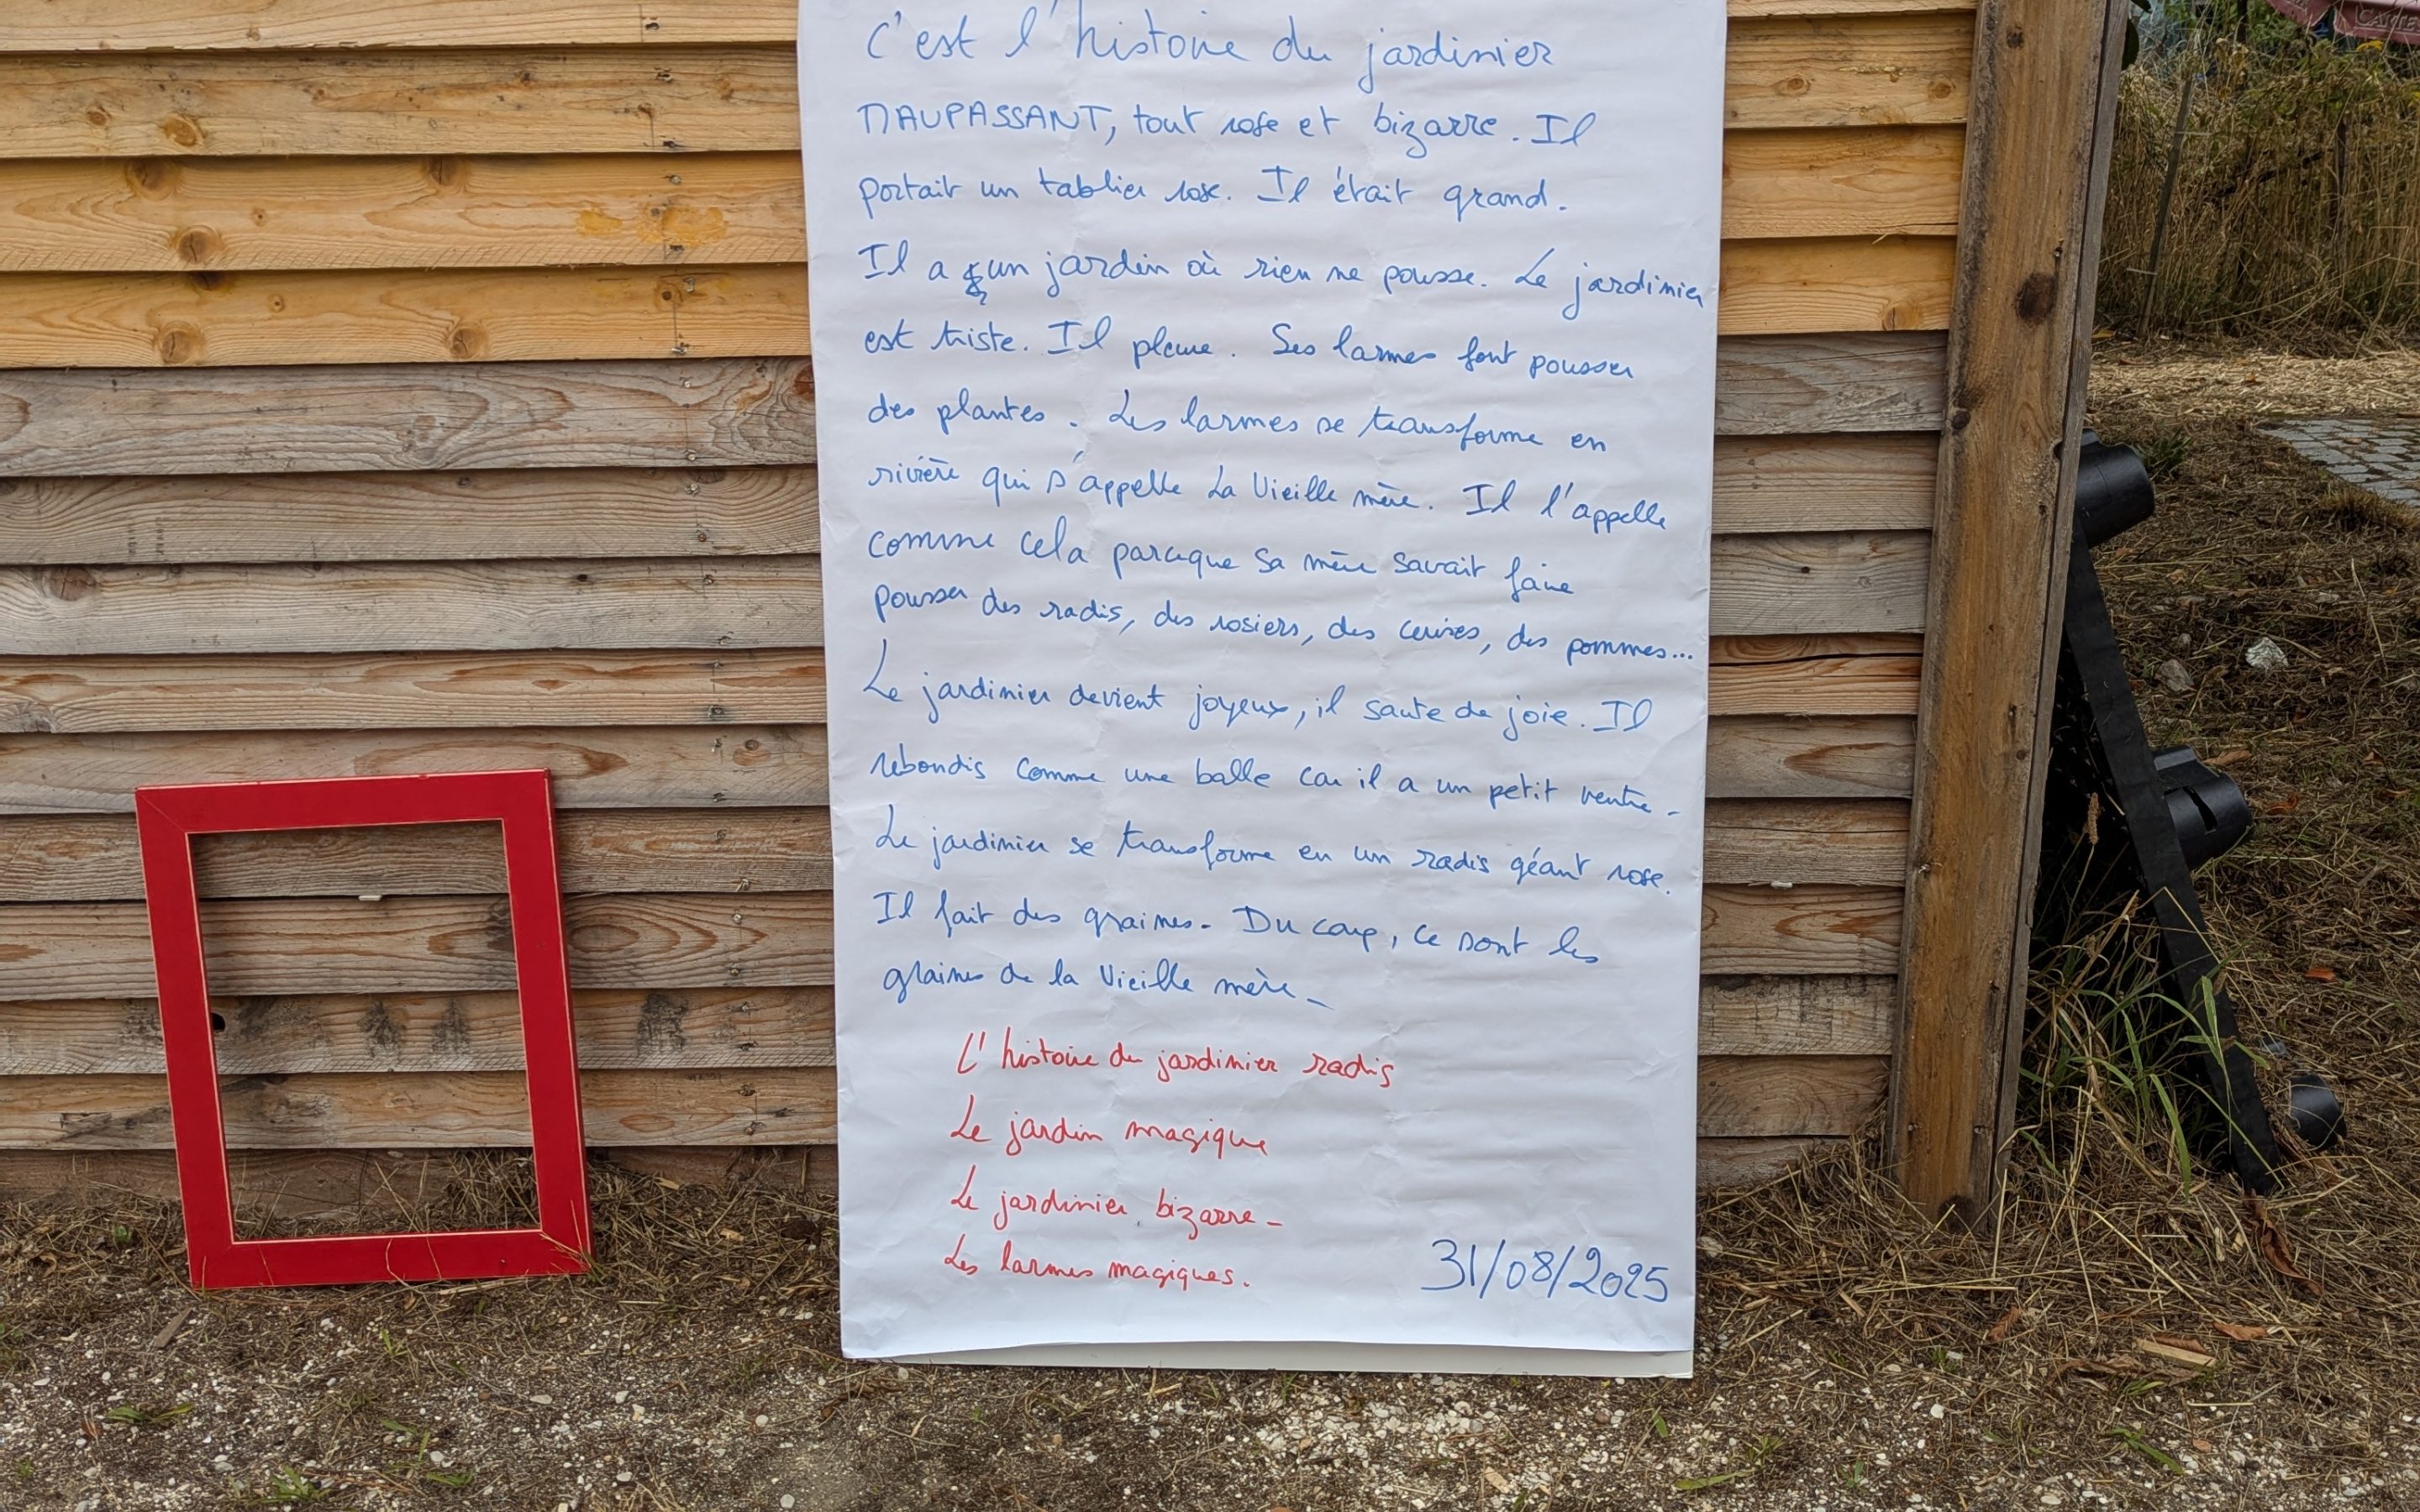 C'est l'histoire du jardinier
MAUPASSANT, tout rose et bizarre. Il
portait un tablier rose. Il était grand.
Il a un jardin où rien ne pousse. Le jardinier
est triste. Il pleure. Ses larmes font pousser
des plantes. Les larmes se transforme en
rivière qui s'appelle La Vieille mère. Il l'appelle
comme cela parceque sa mère savait faire
pousser des radis, des rosiers, des cerises, des pommes...
Le jardinier devient joyeux, il saute de joie. Il
rebondis comme une balle car il a un petit ventre.
Le jardinier se transforme en un radis géant rose.
Il fait des graines. Du coup, ce sont les
graines de la Vieille mère.
L'histoire du jardinier radis
Le jardin magique
Le jardinier bizarre.
Les larmes magiques.
31/08/2025